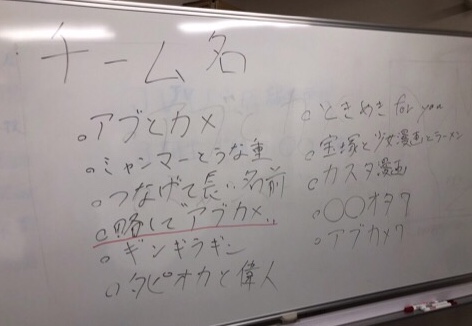 チーム名
○アブとカメ
○ミャンマーとうな重
○つなげて長い名前
○略して「アブカメ」
○ギンギラギン
○タピオカと偉人
○ときめき for you
○宝塚と少女漫画とラーメン
○カスタ漫画
○○○オタク
○アブカメク